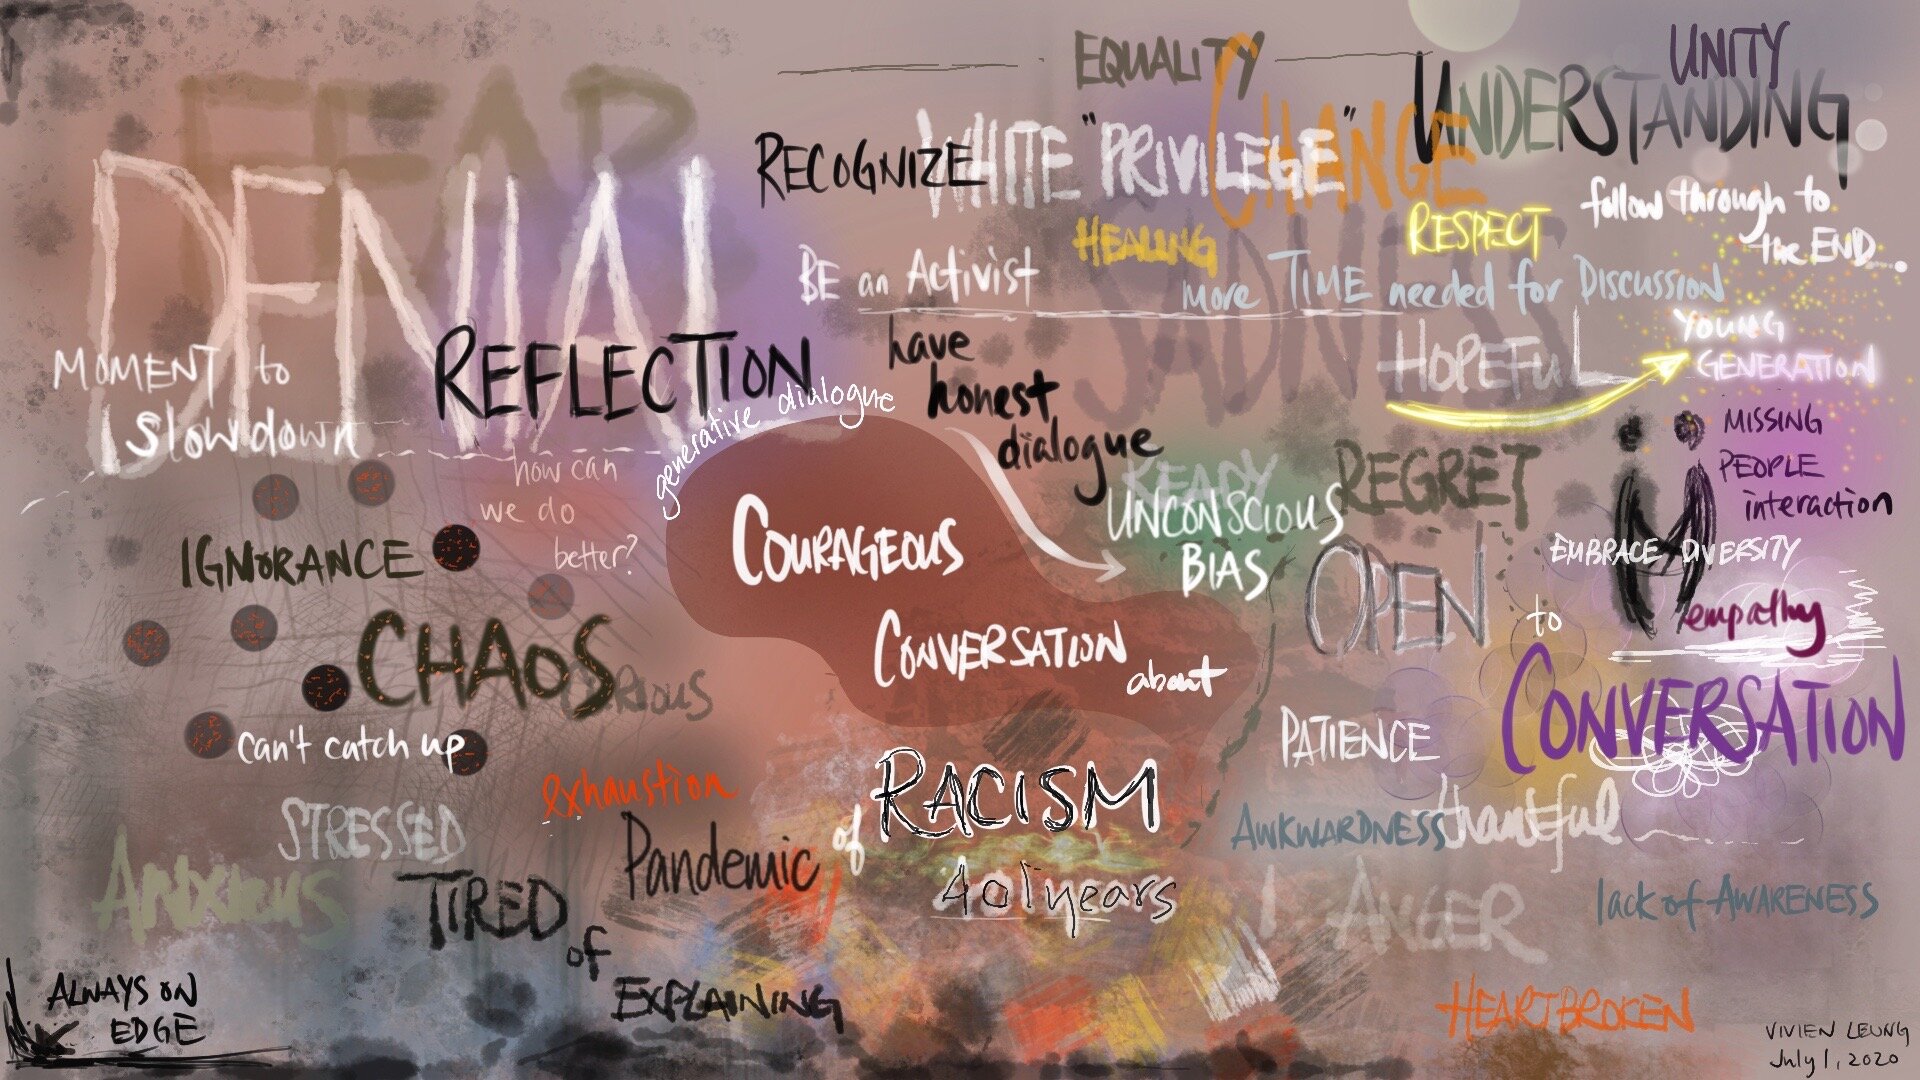 EQUALITY
UNITY
FEAR
CHANGE
UNDERSTANDING
DENIAL
RECOGNIZE
WHITE "PRIVILEGE"
HEALING
RESPECT
follow through to
the END...
BE an Activist
SADNESS
more TIME needed for DISCUSSION
MOMENT to
Slow down
REFLECTION
generative dialogue
have
honest
dialogue
HOPEFUL
YOUNG
GENERATION
MISSING
PEOPLE
interaction
how can
we do
better?
READY
UNCONSCIOUS
BIAS
REGRET
IGNORANCE
COURAGEOUS
CONVERSATION
about
OPEN
to
EMBRACE DIVERSITY
empathy
CONVERSATION
CHAOS
CURIOUS
can't catch up
PATIENCE
exhaustion
STRESSED
Pandemic
of
RACISM
401 years
AWKWARDNESS
thankful
ANXIOUS
TIRED
of
EXPLAINING
ANGER
lack of AWARENESS
ALWAYS ON
EDGE
HEARTBROKEN
VIVIEN LEUNG
July 1, 2020